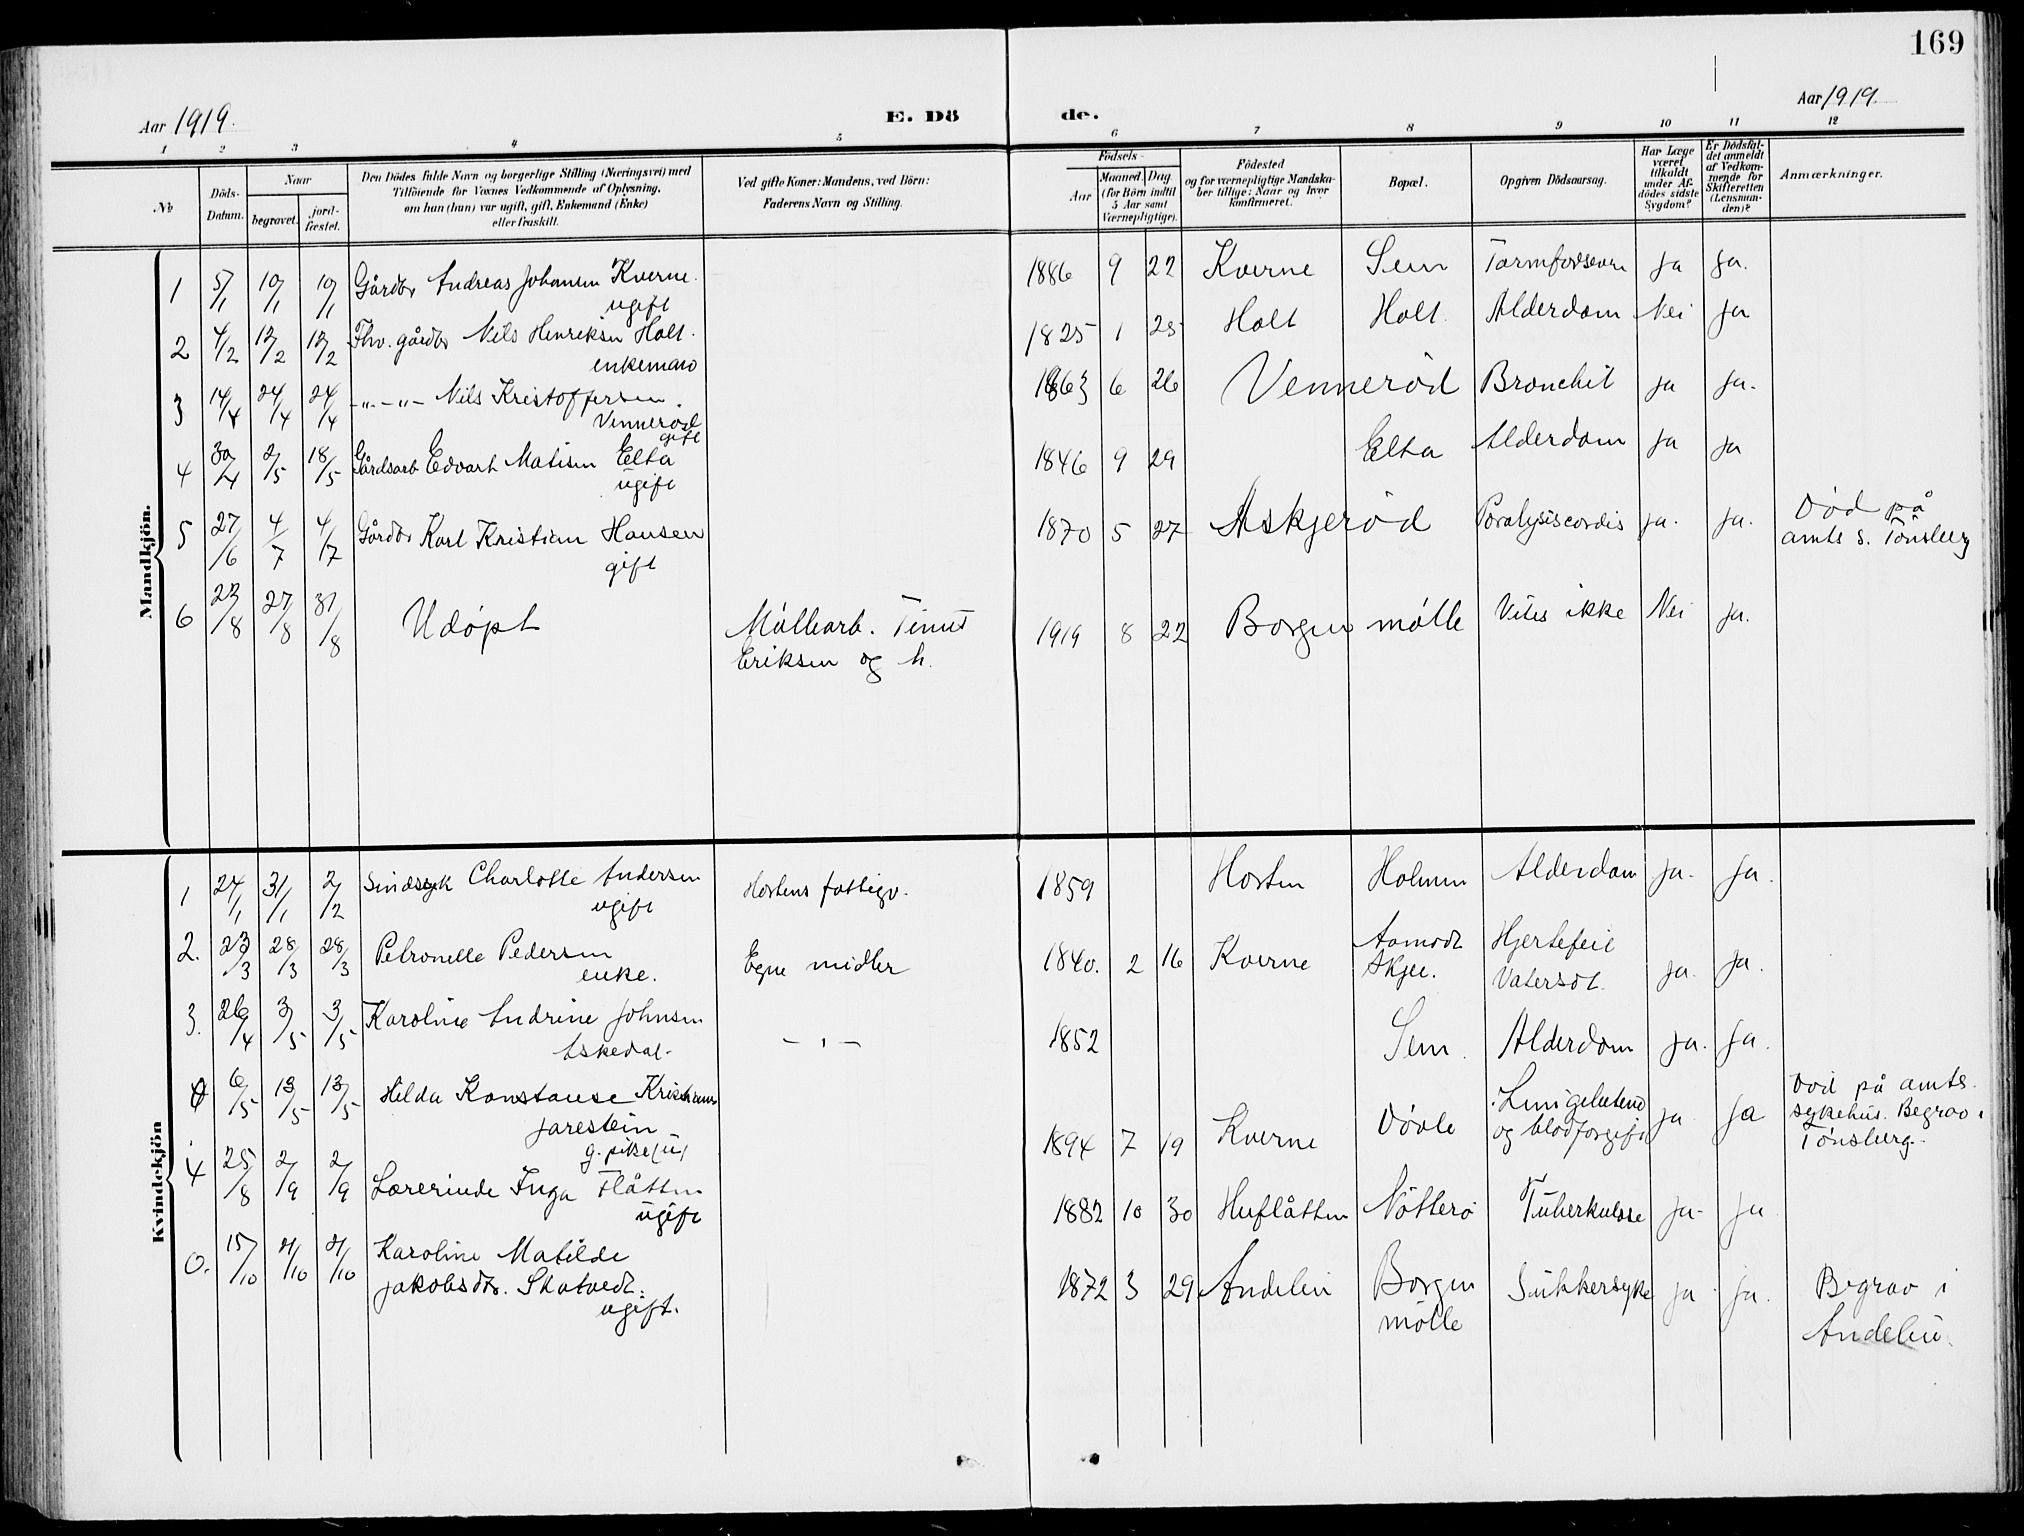 169
Aar 1919.
E. Dö
de.
Aar 1919.
1 2 3 4 5 6 7 8 9 10 11 12
№
Döds-
Datum.
Naar
begravet.
jord-
fæstet.
Den Dödes fulde Navn og borgerlige Stilling (Næringsvei) med
Tilföiende for Voxnes Vedkommende af Oplysning,
om han (hun) var ugift, gift, Enkemand (Enke)
eller fraskilt.
Ved gifte Koner: Mandens, ved Börn:
Faderens Navn og Stilling.
Födsels-
Aar
Maaned. Dag.
(for Börn indtil
5 Aar samt
Værnepligtige).
Födested
og for værnepligtige Mandska-
ber tillige: Naar og hvor
konfirmeret.
Bopæl.
Opgiven Dödsaarsag.
Har Læge
været
tilkaldt
under Af-
dödes sidste
Sygdom?
Er Dödsfal-
det anmeldt
af Vedkom-
mende for
Skifteretten
(Lensman-
den)?
Anmærkninger.
Mandkjön.
1 5/1 10/1 10/1 Gårdbr Andreas Johansen Kverne. 1886 9 22 Kverne Sem ja ja.
ugift
2 4/2 12/2 12/2 Fhv. gårdbr Nils Henriksen Holt. 1825 1 25 Holt Holt. Alderdom Nei ja
enkeman
3 14/4 24/4 24/4 -"- -"- Nils Kristoffersen 1863 6 26 Vennerød Bronchit ja ja.
Vennerød
gift
4 30/4 2/5 18/5 Gårdsarb Edvart Matisen Elta 1846 9 29 Elta Alderdom ja ja
ugift
5 27/6 4/7 4/7 Gårdbr Karl Kristian Hansen 1870 5 27 Askjerød Paralysis cordis ja. ja. Død på
gift amts s. Tönsberg
6 22/8 27/8 31/8 Udøpt Møllearb. 1919 8 22 Borgen mølle Vites ikke Nei ja.
Eriksen og h.
Kvindekjön
1 24/1 31/1 2/2 Sindssyk Charlotte Andersen Hortens fattigv. 1859 Horten Holmen Alderdom ja. ja.
ugift
2. 23/3 28/3 28/3 Petronelle Pedersen Egne midler 1840. 2 16 Kverne Aamodt Hjertefeil ja. ja.
enke. Skjee. Vatersot.
3. 26/4 3/5 3/5 Karoline Andrine Johnsen - " - 1852 Sem. Alderdom ja. ja.
Askedal.
6/5 13/5 13/5 Hilda Konstanse 1894 7 19 Kverne Døvle ja ja Død på amts.
Jarestein og blodforgift sykehus. Begrav i
g. pike (u) Tönsberg.
4 25/8 2/9 2/9 Lærerinde Inga Flåtten 1882 10 30 Huflåtten Nötterö Tuberkulose ja. ja
ugift
0. 15/10 21/10 21/10 Karoline Matilde 1872 3 29 Andebu Borgen Sukkersyke ja ja. Begrav i
Jakobsdtr. Skatvedt. mølle Andebu.
ugift.